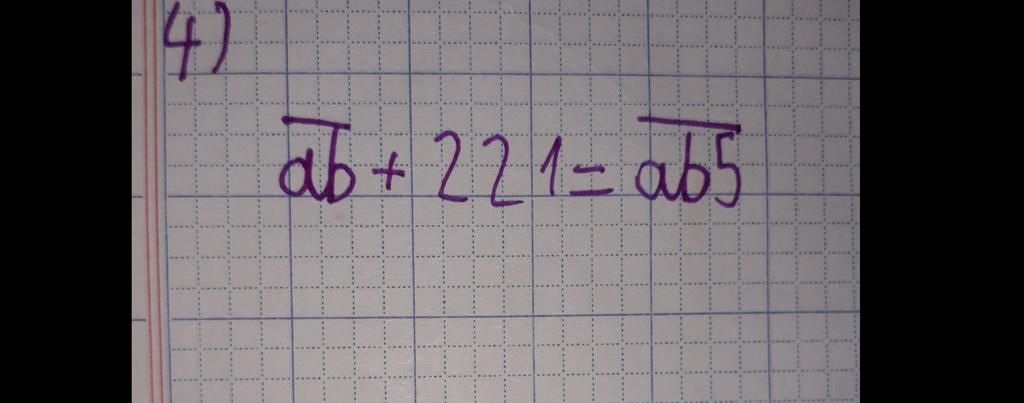 4)
a̅b̅ + 221 = a̅b̅5̅